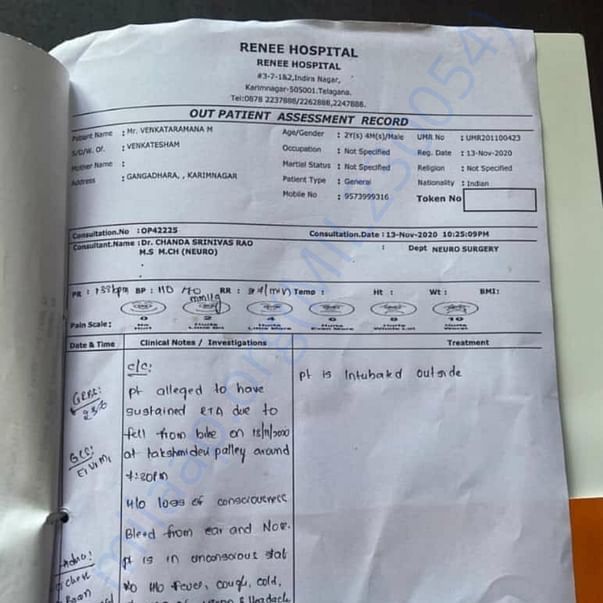 RENEE HOSPITAL
RENEE HOSPITAL
#3-7-1&2,Indira Nagar,
Karimnagar-505001.Telagana.
Tel:0878 2237888/2262888,2247888.
OUT PATIENT ASSESSMENT RECORD
Patient Name : Mr. VENKATARAMANA M Age/Gender : 2Y(s) 4M(s)/Male UMR No : UMR201100423
S/D/W. Of. : VENKATESHAM Occupation : Not Specified Reg. Date : 13-Nov-2020
Mother Name : Martial Status : Not Specified Religion : Not Specified
Address : GANGADHARA, , KARIMNAGAR Patient Type : General Nationality : Indian
Mobile No : 9573999316 Token No
Consultation.No : OP42225 Consultation.Date : 13-Nov-2020 10:25:09PM
Consultant.Name : Dr. CHANDA SRINIVAS RAO : Dept NEURO SURGERY
M.S M.CH (NEURO)
PR : 138bpm BP : 110 mmHg RR : (min) Temp : Ht : Wt : BMI:
Pain Scale: 0 2 4 6 8 10
No Hurt Hurts Little Bit Hurts Little More Hurts Even More Hurts Whole Lot Hurts Worst
Date & Time Clinical Notes / Investigations Treatment
c/c:
pt is Intubated outside
GRBS:
pt alleged to have
sustained RTA due to
GCS:
E1V1M1
fell from bike on
at lakshmidevi palley around
:30pm
H/o loss of consciousness
Bleed from ear and Nose.
pt is in unconscious stat
Adv:
chest
No H/o Fever, cough, cold,
Brain
& Headach
milaap.org